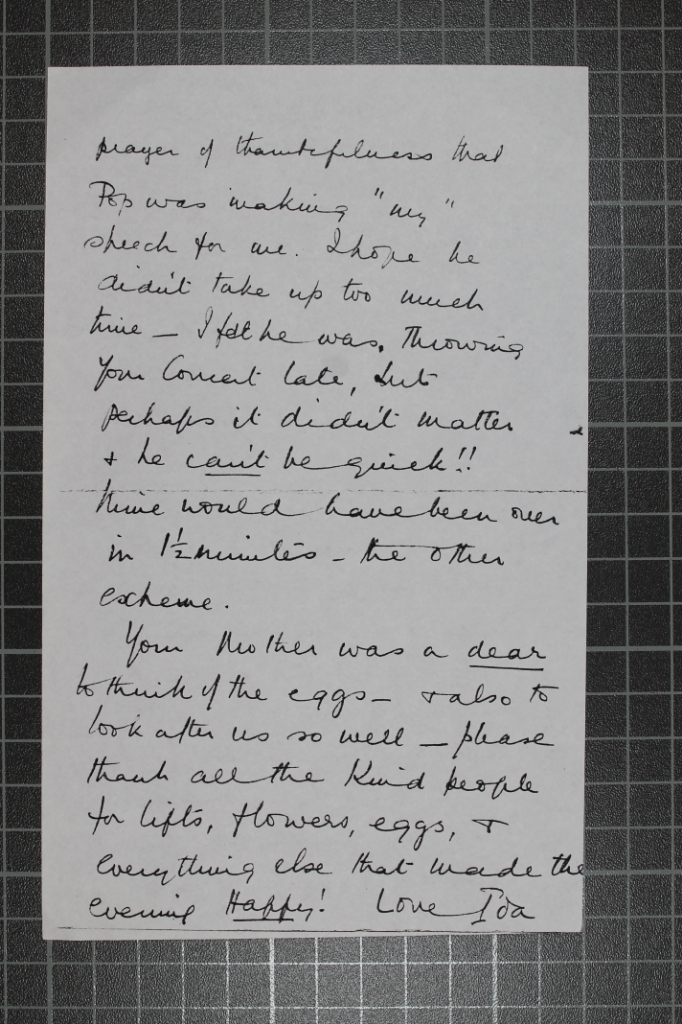 prayer of thankfulness that
Pop was making "my"
speech for me. I hope he
didn't take up too much
time - I felt he was, throwing
your Concert late, but
perhaps it didn't matter
& he can't be quick!!
Mine would have been over
in 1½ minutes - the other
extreme.
Your Mother was a dear
to think of the eggs - & also to
look after us so well - please
thank all the Kind people
for lifts, flowers, eggs, &
everything else that made the
evening Happy! Love Ida